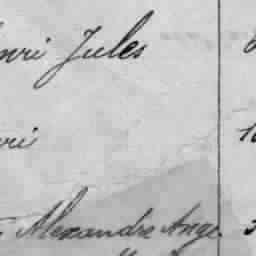 nri Jules
nri
Alexandre Ange